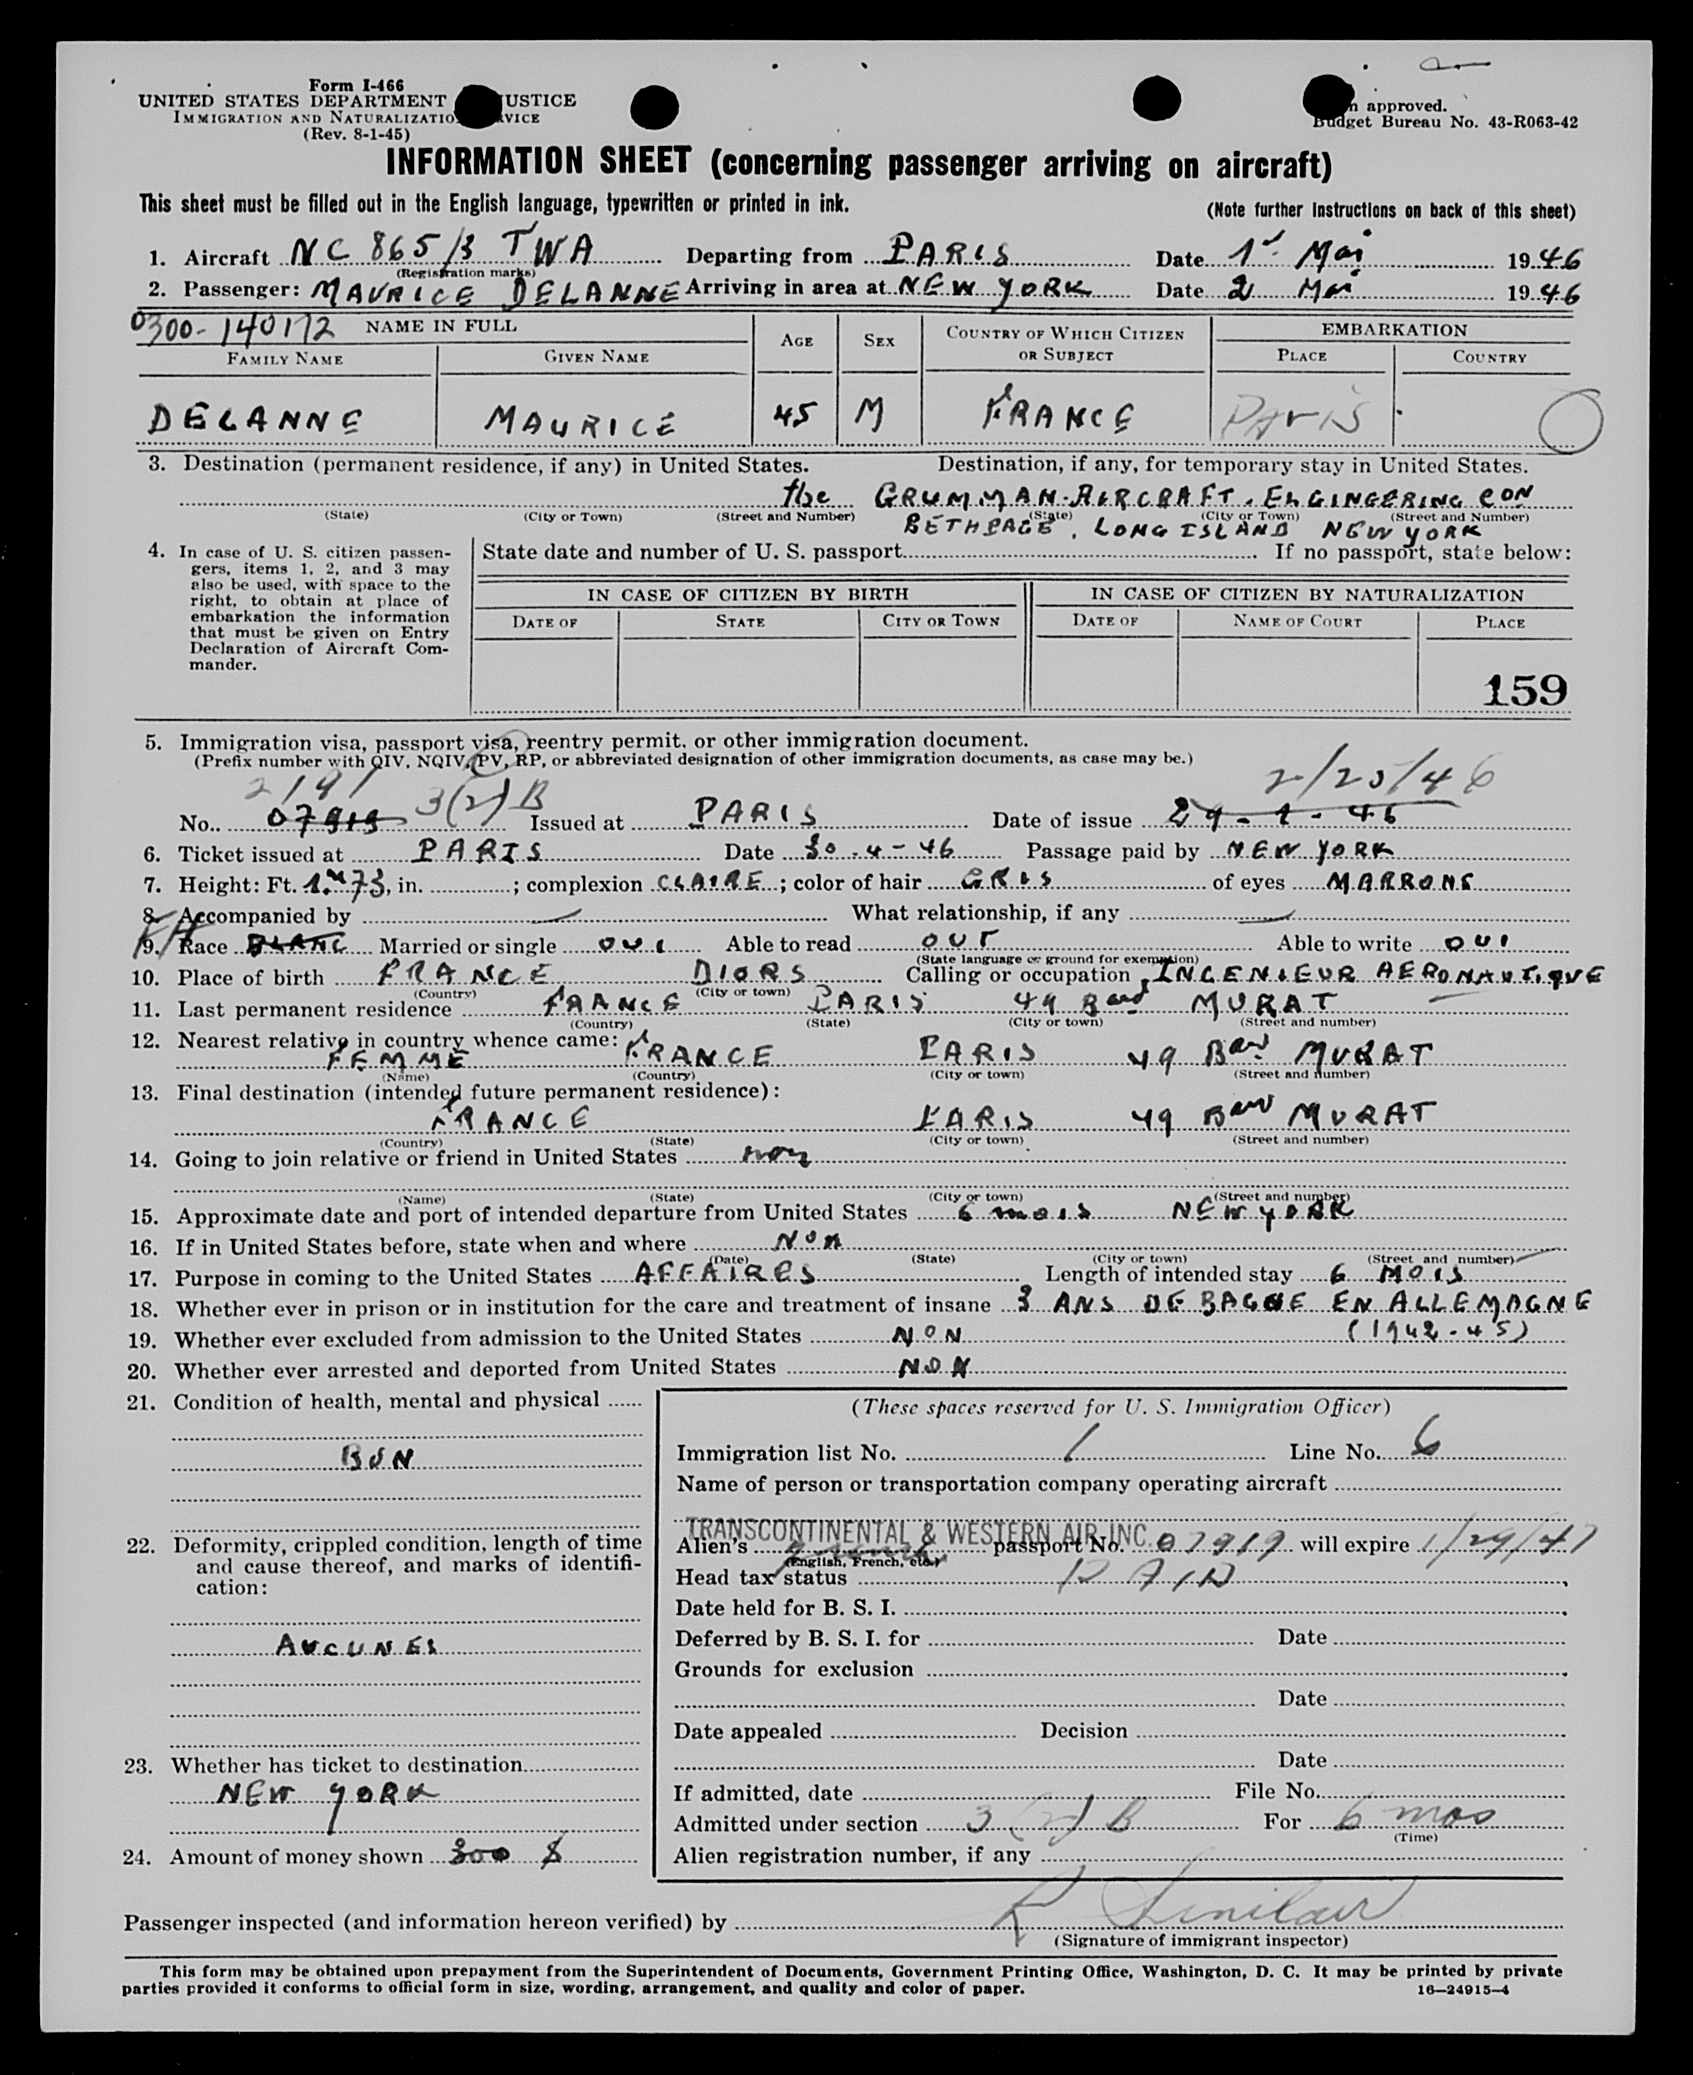 Form I-466
UNITED STATES DEPARTMENT JUSTICE
IMMIGRATION AND NATURALIZATION SERVICE
(Rev. 8-1-45)
approved.
Budget Bureau No. 43-R063-42
INFORMATION SHEET (concerning passenger arriving on aircraft)
This sheet must be filled out in the English language, typewritten or printed in ink.
(Note further instructions on back of this sheet)
1. Aircraft NC 865 /B TWA Departing from PARIS Date 1er Mai 1946
(Registration marks)
2. Passenger: MAURICE DELANNE Arriving in area at NEW YORK Date 2 Mai 1946
0300-140172 NAME IN FULL AGE SEX COUNTRY OF WHICH CITIZEN OR SUBJECT EMBARKATION
FAMILY NAME GIVEN NAME PLACE COUNTRY
DELANNE MAURICE 45 M FRANCE PARIS
3. Destination (permanent residence, if any) in United States. Destination, if any, for temporary stay in United States.
the GRUMMAN AIRCRAFT ENGINGERING CON
(State) (City or Town) (Street and Number) (State) (City or Town) (Street and Number)
BETHPAGE, LONG ISLAND NEW YORK
4. In case of U. S. citizen passengers, items 1, 2, and 3 may also be used, with space to the right, to obtain at place of embarkation the information that must be given on Entry Declaration of Aircraft Commander.
State date and number of U. S. passport If no passport, state below:
IN CASE OF CITIZEN BY BIRTH IN CASE OF CITIZEN BY NATURALIZATION
DATE OF STATE CITY OR TOWN DATE OF NAME OF COURT PLACE
159
5. Immigration visa, passport visa, reentry permit, or other immigration document.
(Prefix number with QIV, NQIV, PV, RP, or abbreviated designation of other immigration documents, as case may be.)
2191 3(2)B 2/25/46
No. 07919 Issued at PARIS Date of issue 29-1-46
6. Ticket issued at PARIS Date 30-4-46 Passage paid by NEW YORK
7. Height: Ft. 1.m73, in. ; complexion CLAIRE ; color of hair GRIS of eyes MARRONS
8. Accompanied by — What relationship, if any —
9. Race BLANC Married or single OUI Able to read OUI Able to write OUI
(State language or ground for exemption)
10. Place of birth FRANCE DIORS Calling or occupation INGENIEUR AERONAUTIQUE
(Country) (City or town)
11. Last permanent residence FRANCE PARIS 49 Bard MURAT
(Country) (State) (City or town) (Street and number)
12. Nearest relative in country whence came:
FEMME FRANCE PARIS 49 Bard MURAT
(Name) (Country) (City or town) (Street and number)
13. Final destination (intended future permanent residence):
FRANCE PARIS 49 Bard MURAT
(Country) (State) (City or town) (Street and number)
14. Going to join relative or friend in United States non
(Name) (State) (City or town) (Street and number)
15. Approximate date and port of intended departure from United States 6 mois NEW YORK
16. If in United States before, state when and where NON
(Date) (State) (City or town) (Street and number)
17. Purpose in coming to the United States AFFAIRES Length of intended stay 6 MOIS
18. Whether ever in prison or in institution for the care and treatment of insane 3 ANS DE BAGNE EN ALLEMAGNE
(1942-45)
19. Whether ever excluded from admission to the United States NON
20. Whether ever arrested and deported from United States NON
21. Condition of health, mental and physical
BON
22. Deformity, crippled condition, length of time and cause thereof, and marks of identification:
AUCUNES
23. Whether has ticket to destination
NEW YORK
24. Amount of money shown 300 $
(These spaces reserved for U. S. Immigration Officer)
Immigration list No. 1 Line No. 6
Name of person or transportation company operating aircraft
TRANSCONTINENTAL & WESTERN AIR INC.
Alien's french passport No. 07919 will expire 1/29/47
(English, French, etc.)
Head tax status PAID
Date held for B. S. I.
Deferred by B. S. I. for Date
Grounds for exclusion
Date
Date appealed Decision
Date
If admitted, date File No.
Admitted under section 3(2)B For 6 mos
(Time)
Alien registration number, if any
Passenger inspected (and information hereon verified) by
(Signature of immigrant inspector)
This form may be obtained upon prepayment from the Superintendent of Documents, Government Printing Office, Washington, D. C. It may be printed by private
parties provided it conforms to official form in size, wording, arrangement, and quality and color of paper.
16—24915-4